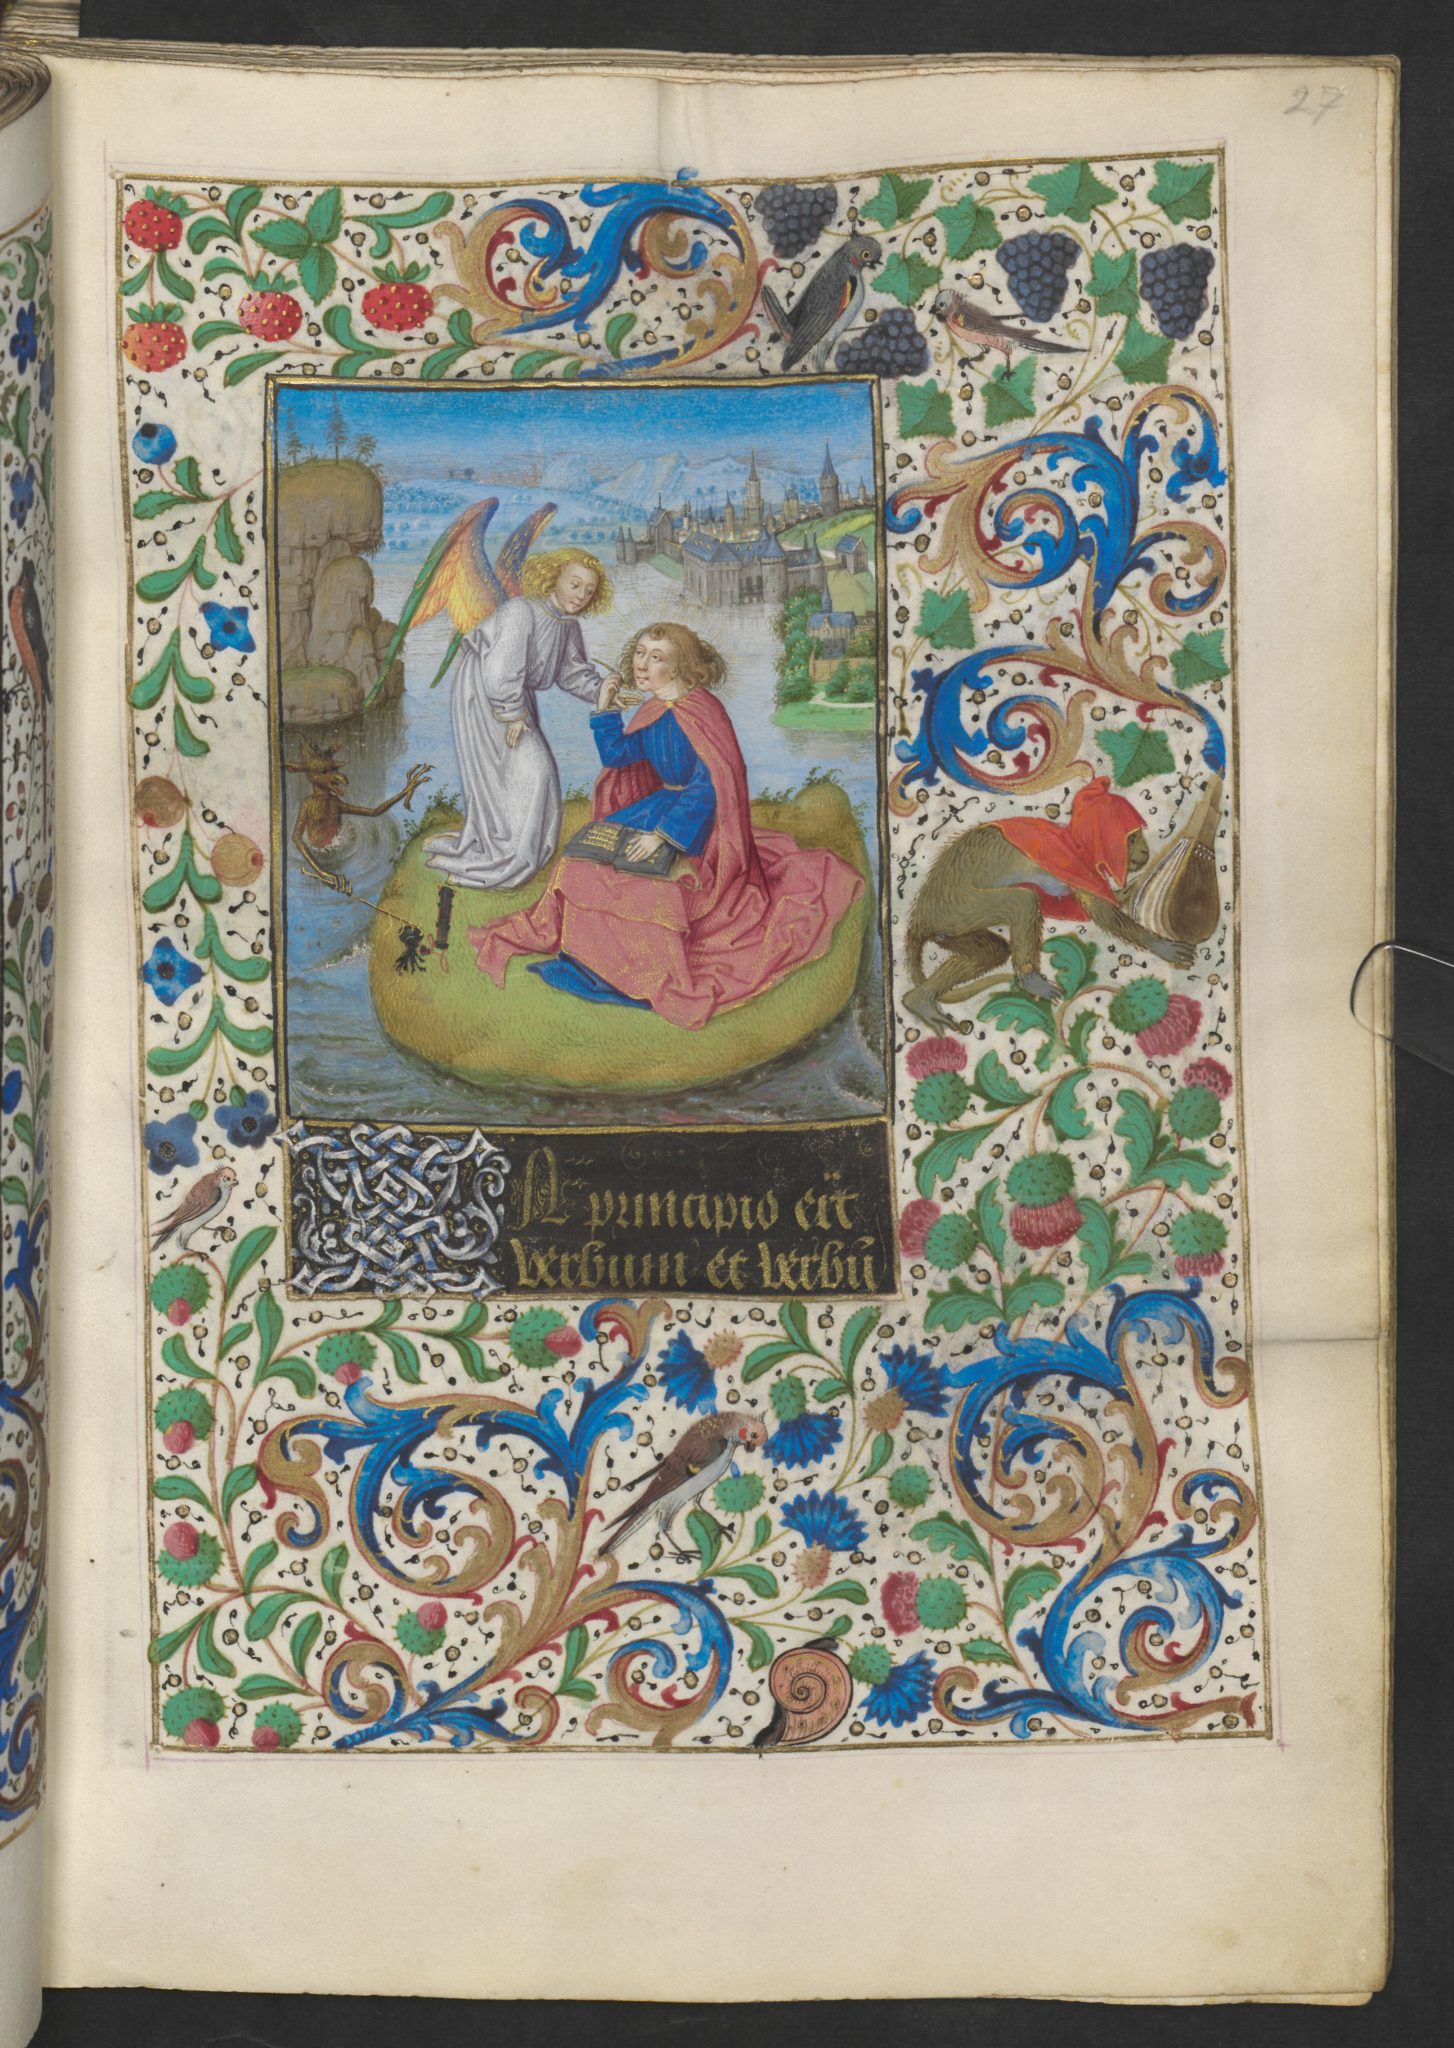 27
IN principio erat
verbum et verbū